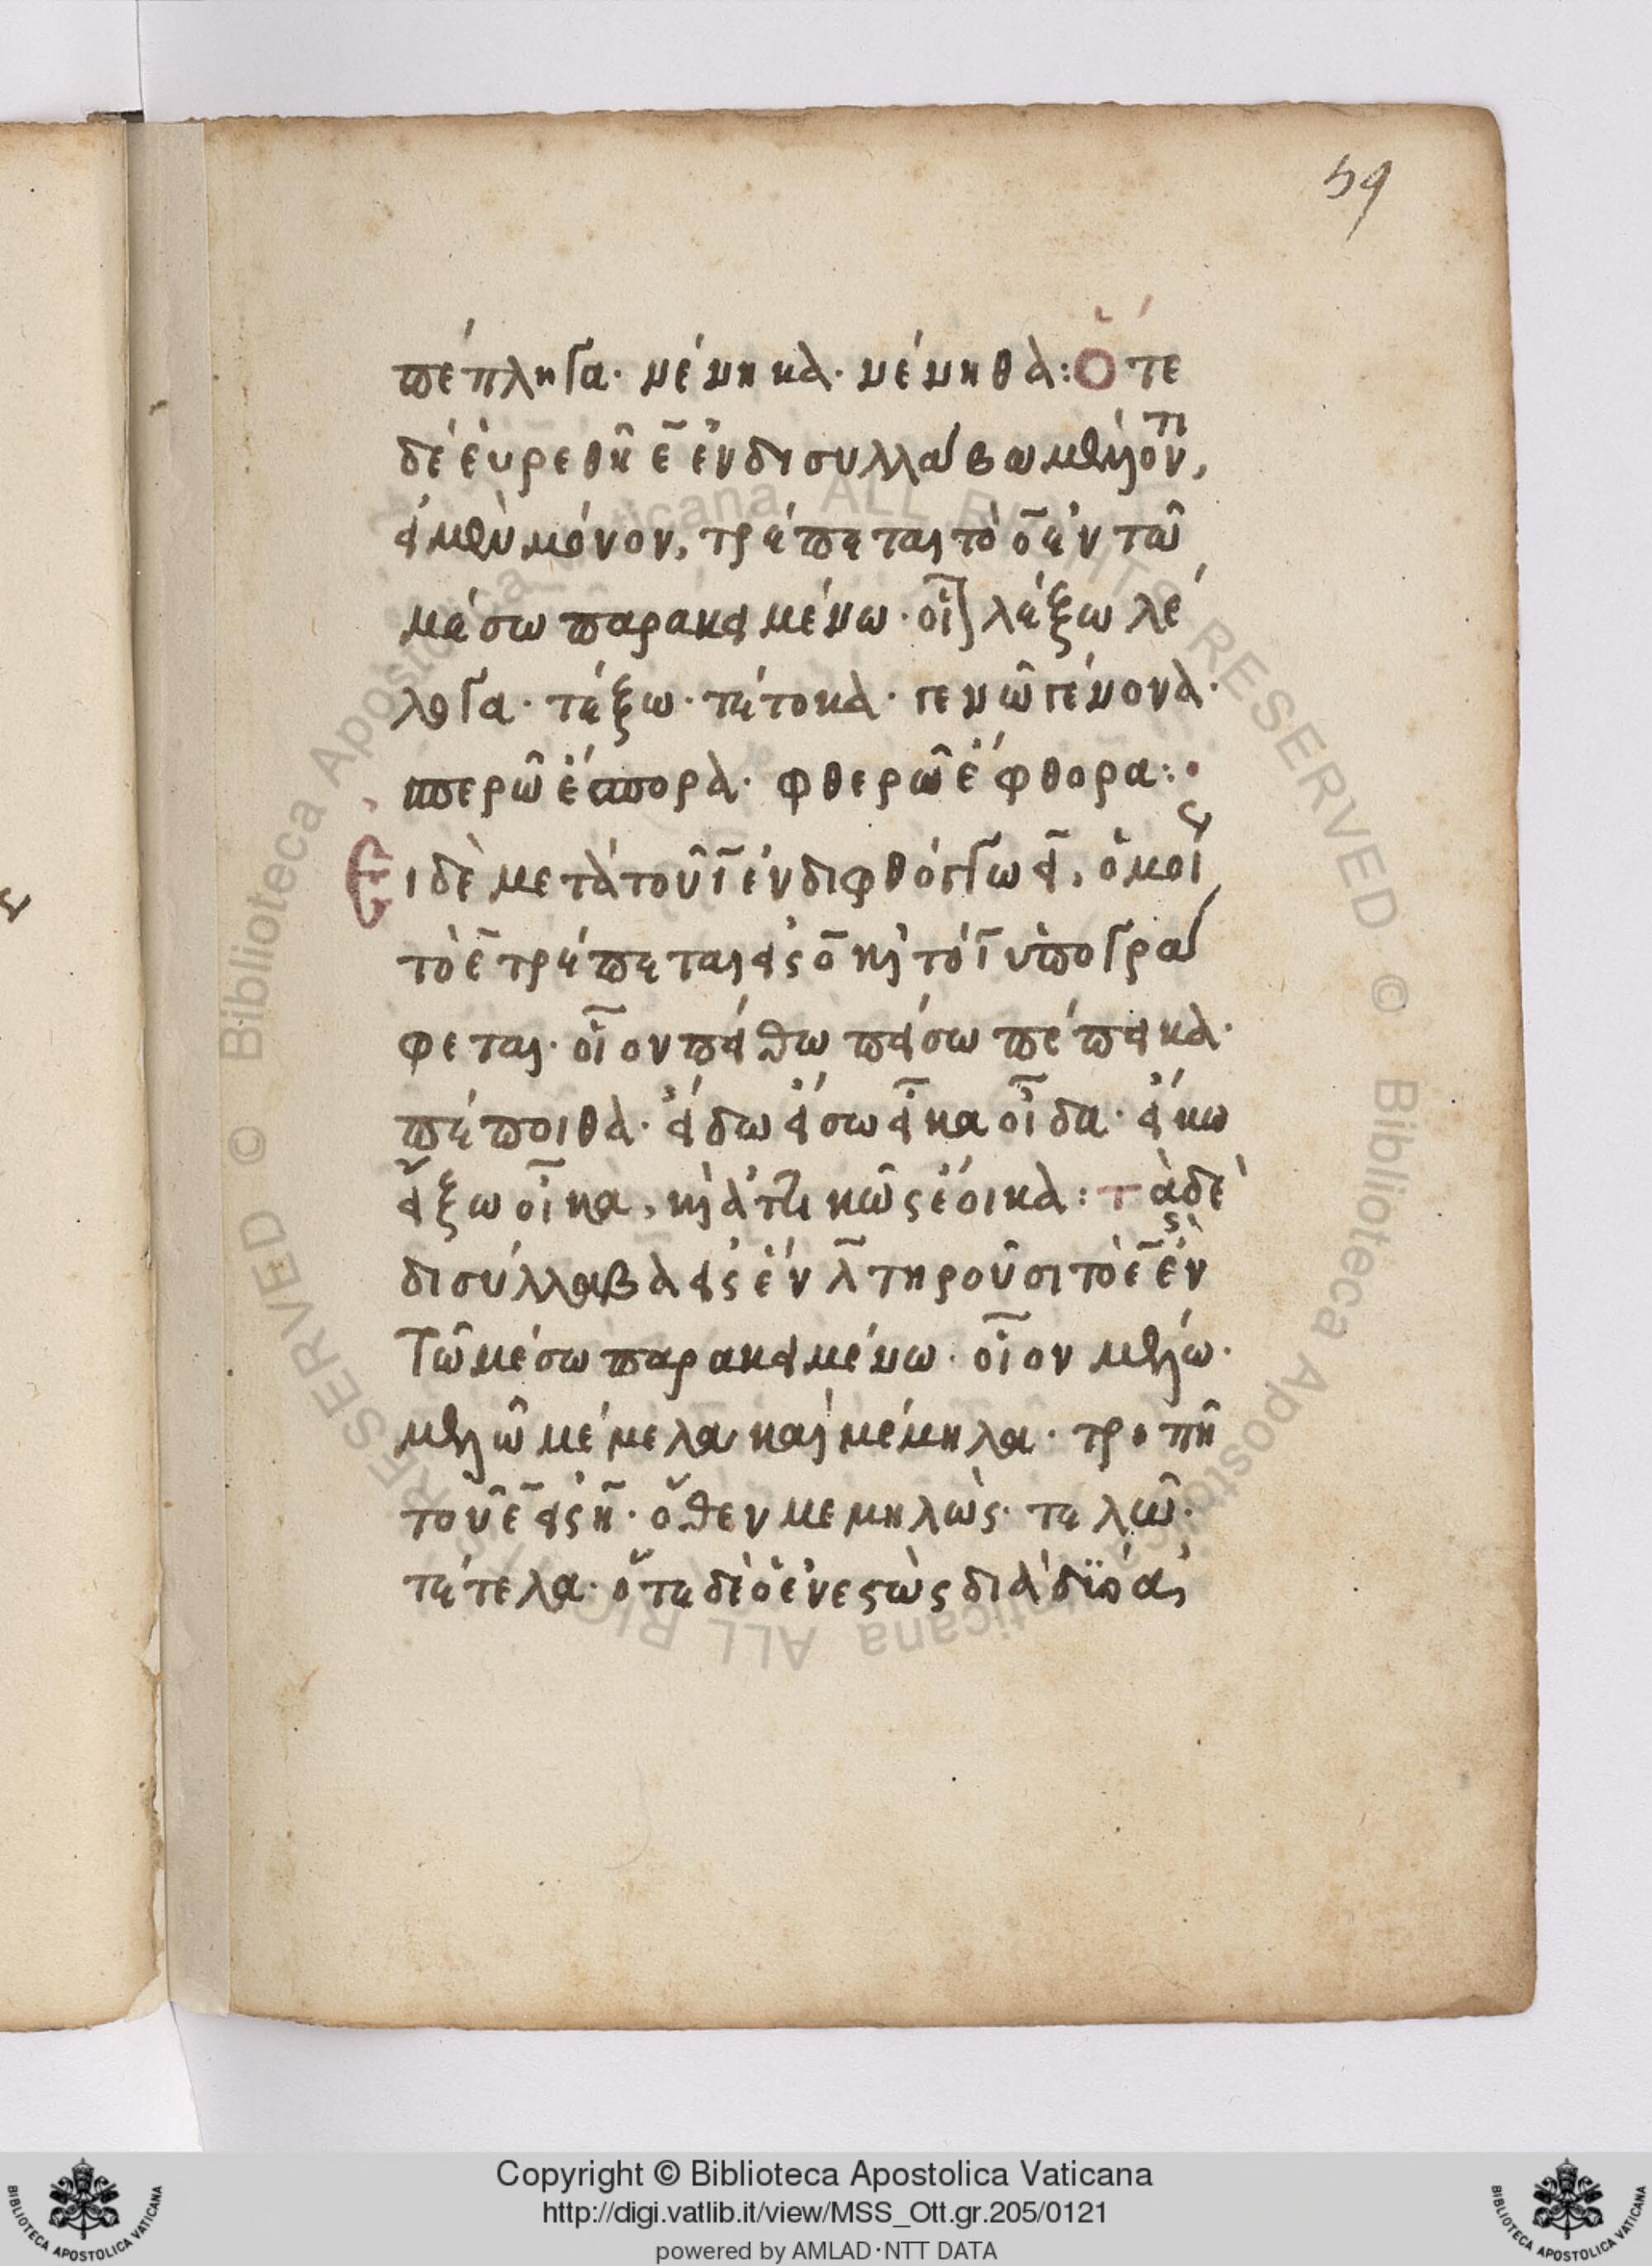 59
πέπληγα· νένηκα· νένηθα: Ὅτε
δὲ εὑρεθῆ ε̄ ἐν δισυλλάβω μέλλοντι,
εἰ μὲν μόνον, τρέπεται τὸ ο̄ ἐν τῶ
μέσω παρακειμένω· οἷον λέξω λέ
λογα· τέξω· τέτοκα· γενῶ γέγονα·
σπερῶ ἔσπορα· φθερῶ ἔφθορα:·
Εἰ δὲ μετὰ τοῦ ῑ ἐν διφθόγγω ει, ὁμοίως
τὸ ε̄ τρέπεται εἰς ο̄ καὶ τὸ ῑ ὑπογρά
φεται· οἷον πείθω πείσω πέπεικα·
πέποιθα· εἴδω εἴσω εἶκα οἶδα· εἴκω
εἴξω οἶκα, καὶ ἀττικῶς ἔοικα: τὰ δὲ
δισύλλαβα εἰς ἓν λ̄ τηροῦσι τὸ ε̄ ἐν
Τῶ μέσω παρακειμένω· οἷον μέλλω·
μελλῶ μέμελα καὶ μέμηλα· τροπῆ
τοῦ ε̄ εἰς η̄· ὅθεν μεμηλὼς· τελῶ·
τέτελα· ὅτε δὲ ὁ ἐνεστὼς διὰ δϊφ
Copyright © Biblioteca Apostolica Vaticana
http://digi.vatlib.it/view/MSS_Ott.gr.205/0121
powered by AMLAD·NTT DATA
BIBLIOTECA APOSTOLICA VATICANA
BIBLIOTECA APOSTOLICA VATICANA